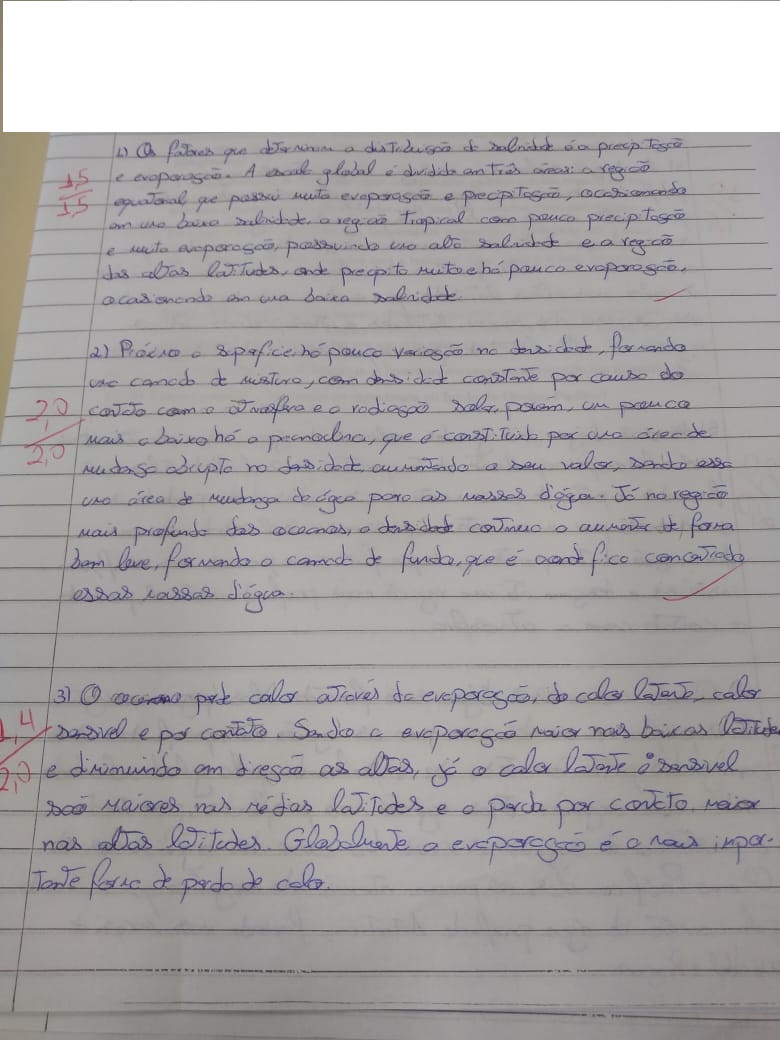 1) Os fatores que determinam a distribuição de salinidade é a precipitação
1,5 e evaporação. A escala global é dividida em três áreas: a região
1,5 equatorial que possui muita evaporação e precipitação, ocasionando
em uma baixa salinidade, a região tropical com pouca precipitação
e muita evaporação, possuindo uma alta salinidade e a região
das altas latitudes, onde precipita muito e há pouca evaporação,
ocasionando em uma baixa salinidade.
2) Próximo a superfície há pouca variação na densidade, formando
uma camada de mistura, com densidade constante por causa do
2,0 contato com a atmosfera e a radiação solar, porém, um pouco
2,0 mais abaixo há a picnoclina, que é constituída por uma área de
mudança abrupta na densidade, aumentando o seu valor, sendo essa
uma área de mudança de água para as massas d'água. Já na região
mais profunda dos oceanos, a densidade continua a aumentar de forma
bem leve, formando a camada de fundo, que é onde fica concentrado
essas massas d'água.
3) O oceano perde calor através da evaporação, do calor latente, calor
1,4 sensível e por contato. Sendo a evaporação maior nas baixas latitudes
2,0 e diminuindo em direção as altas, já o calor latente e sensível
são maiores nas médias latitudes e a perda por contato maior
nas altas latitudes. Globalmente a evaporação é a mais impor-
tante forma de perda de calor.